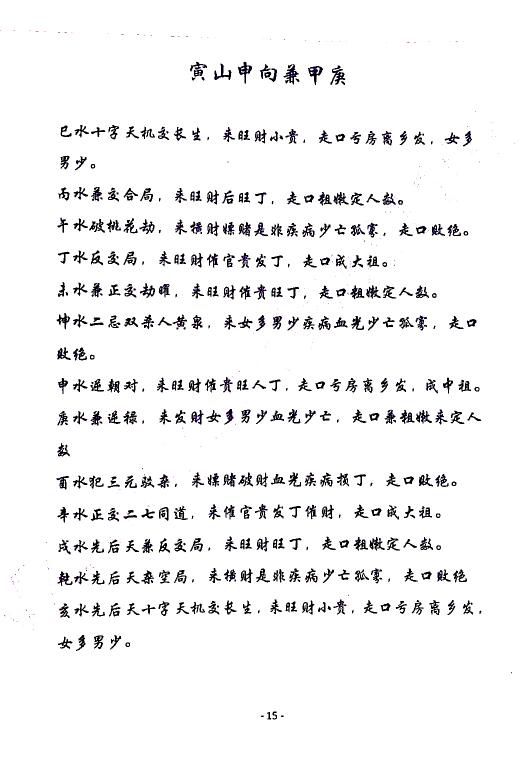 寅山申向兼甲庚
巳水十字天机交长生，来旺财小贵，走口亏房离乡发，女多
男少。
丙水兼交合局，来旺财后旺丁，走口粗嫩定人数。
午水破桃花劫，来横财嫖赌是非疾病少亡孤寡，走口败绝。
丁水反交局，来旺财催官贵发丁，走口成大祖。
未水兼正交劫曜，来旺财催贵旺丁，走口粗嫩定人数。
坤水二忌双杀人黄泉，来女多男少疾病血光少亡孤寡，走口
败绝。
申水逆朝对，来旺财催贵旺人丁，走口亏房离乡发，成中祖。
庚水兼逆禄，来发财女多男少血光少亡，走口兼粗嫩来定人
数
酉水犯三元败杂，来嫖赌破财血光疾病损丁，走口败绝。
辛水正交二七同道，来催官贵发丁催财，走口成大祖。
戌水先后天兼反交局，来旺财旺丁，走口粗嫩定人数。
乾水先后天杂空局，来横财是非疾病少亡孤寡，走口败绝
亥水先后天十字天机交长生，来旺财小贵，走口亏房离乡发，
女多男少。
- 15 -